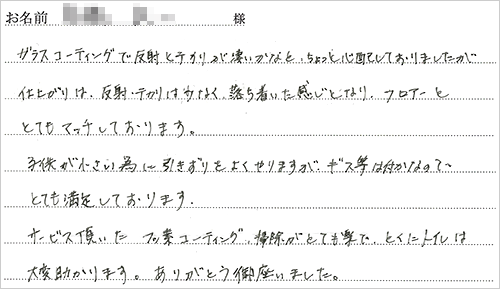 お名前 様
ガラスコーティングで反射とテカリが凄いかなと、ちょっと心配しておりましたが
仕上がりは、反射・テカリは少なく、落ち着いた感じとなり、フロアーと
とてもマッチしております。
子供が小さい為に引きずりをよくやりますが、キズ等は付かなので、
とても満足しております。
サービス頂いた フッ素コーティング、掃除がとても楽で、とくにトイレは
大変助かります。ありがとう御座いました。